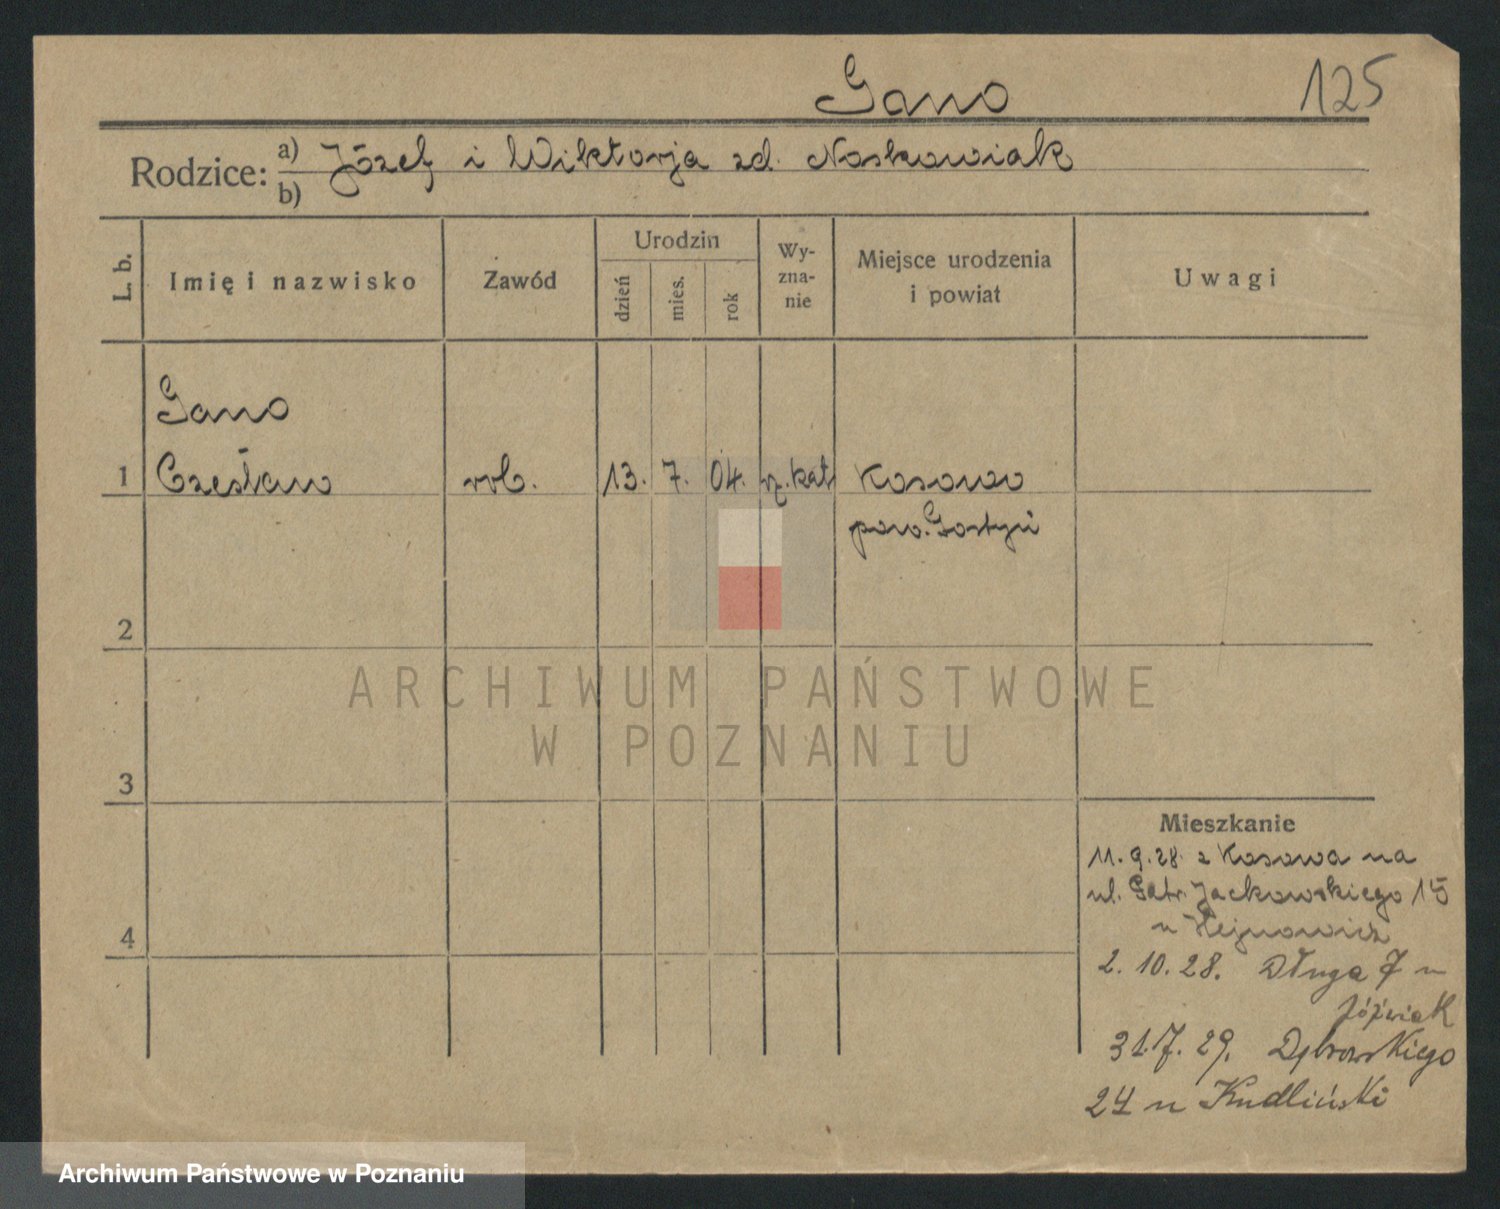 Gano 125
Rodzice: a) Józef i Wiktorja zd. Noskowiak
b)
L. b. Imię i nazwisko Zawód Urodzin dzień mies. rok Wy-zna-nie Miejsce urodzenia i powiat Uwagi
Gano
1 Czesław rob. 13. 7. 04. rz. kat Kosowo
pow. Gostyń
2
3
4
Mieszkanie
11. 9. 28. z Kosowa na
ul. Jackowskiego 15
u Hejnowicz
2. 10. 28. Długa 7 u
Jóźwiak
31. 7. 29. Dąbrowskiego
24 u Kudliński
ARCHIWUM PAŃSTWOWE
W POZNANIU
Archiwum Państwowe w Poznaniu